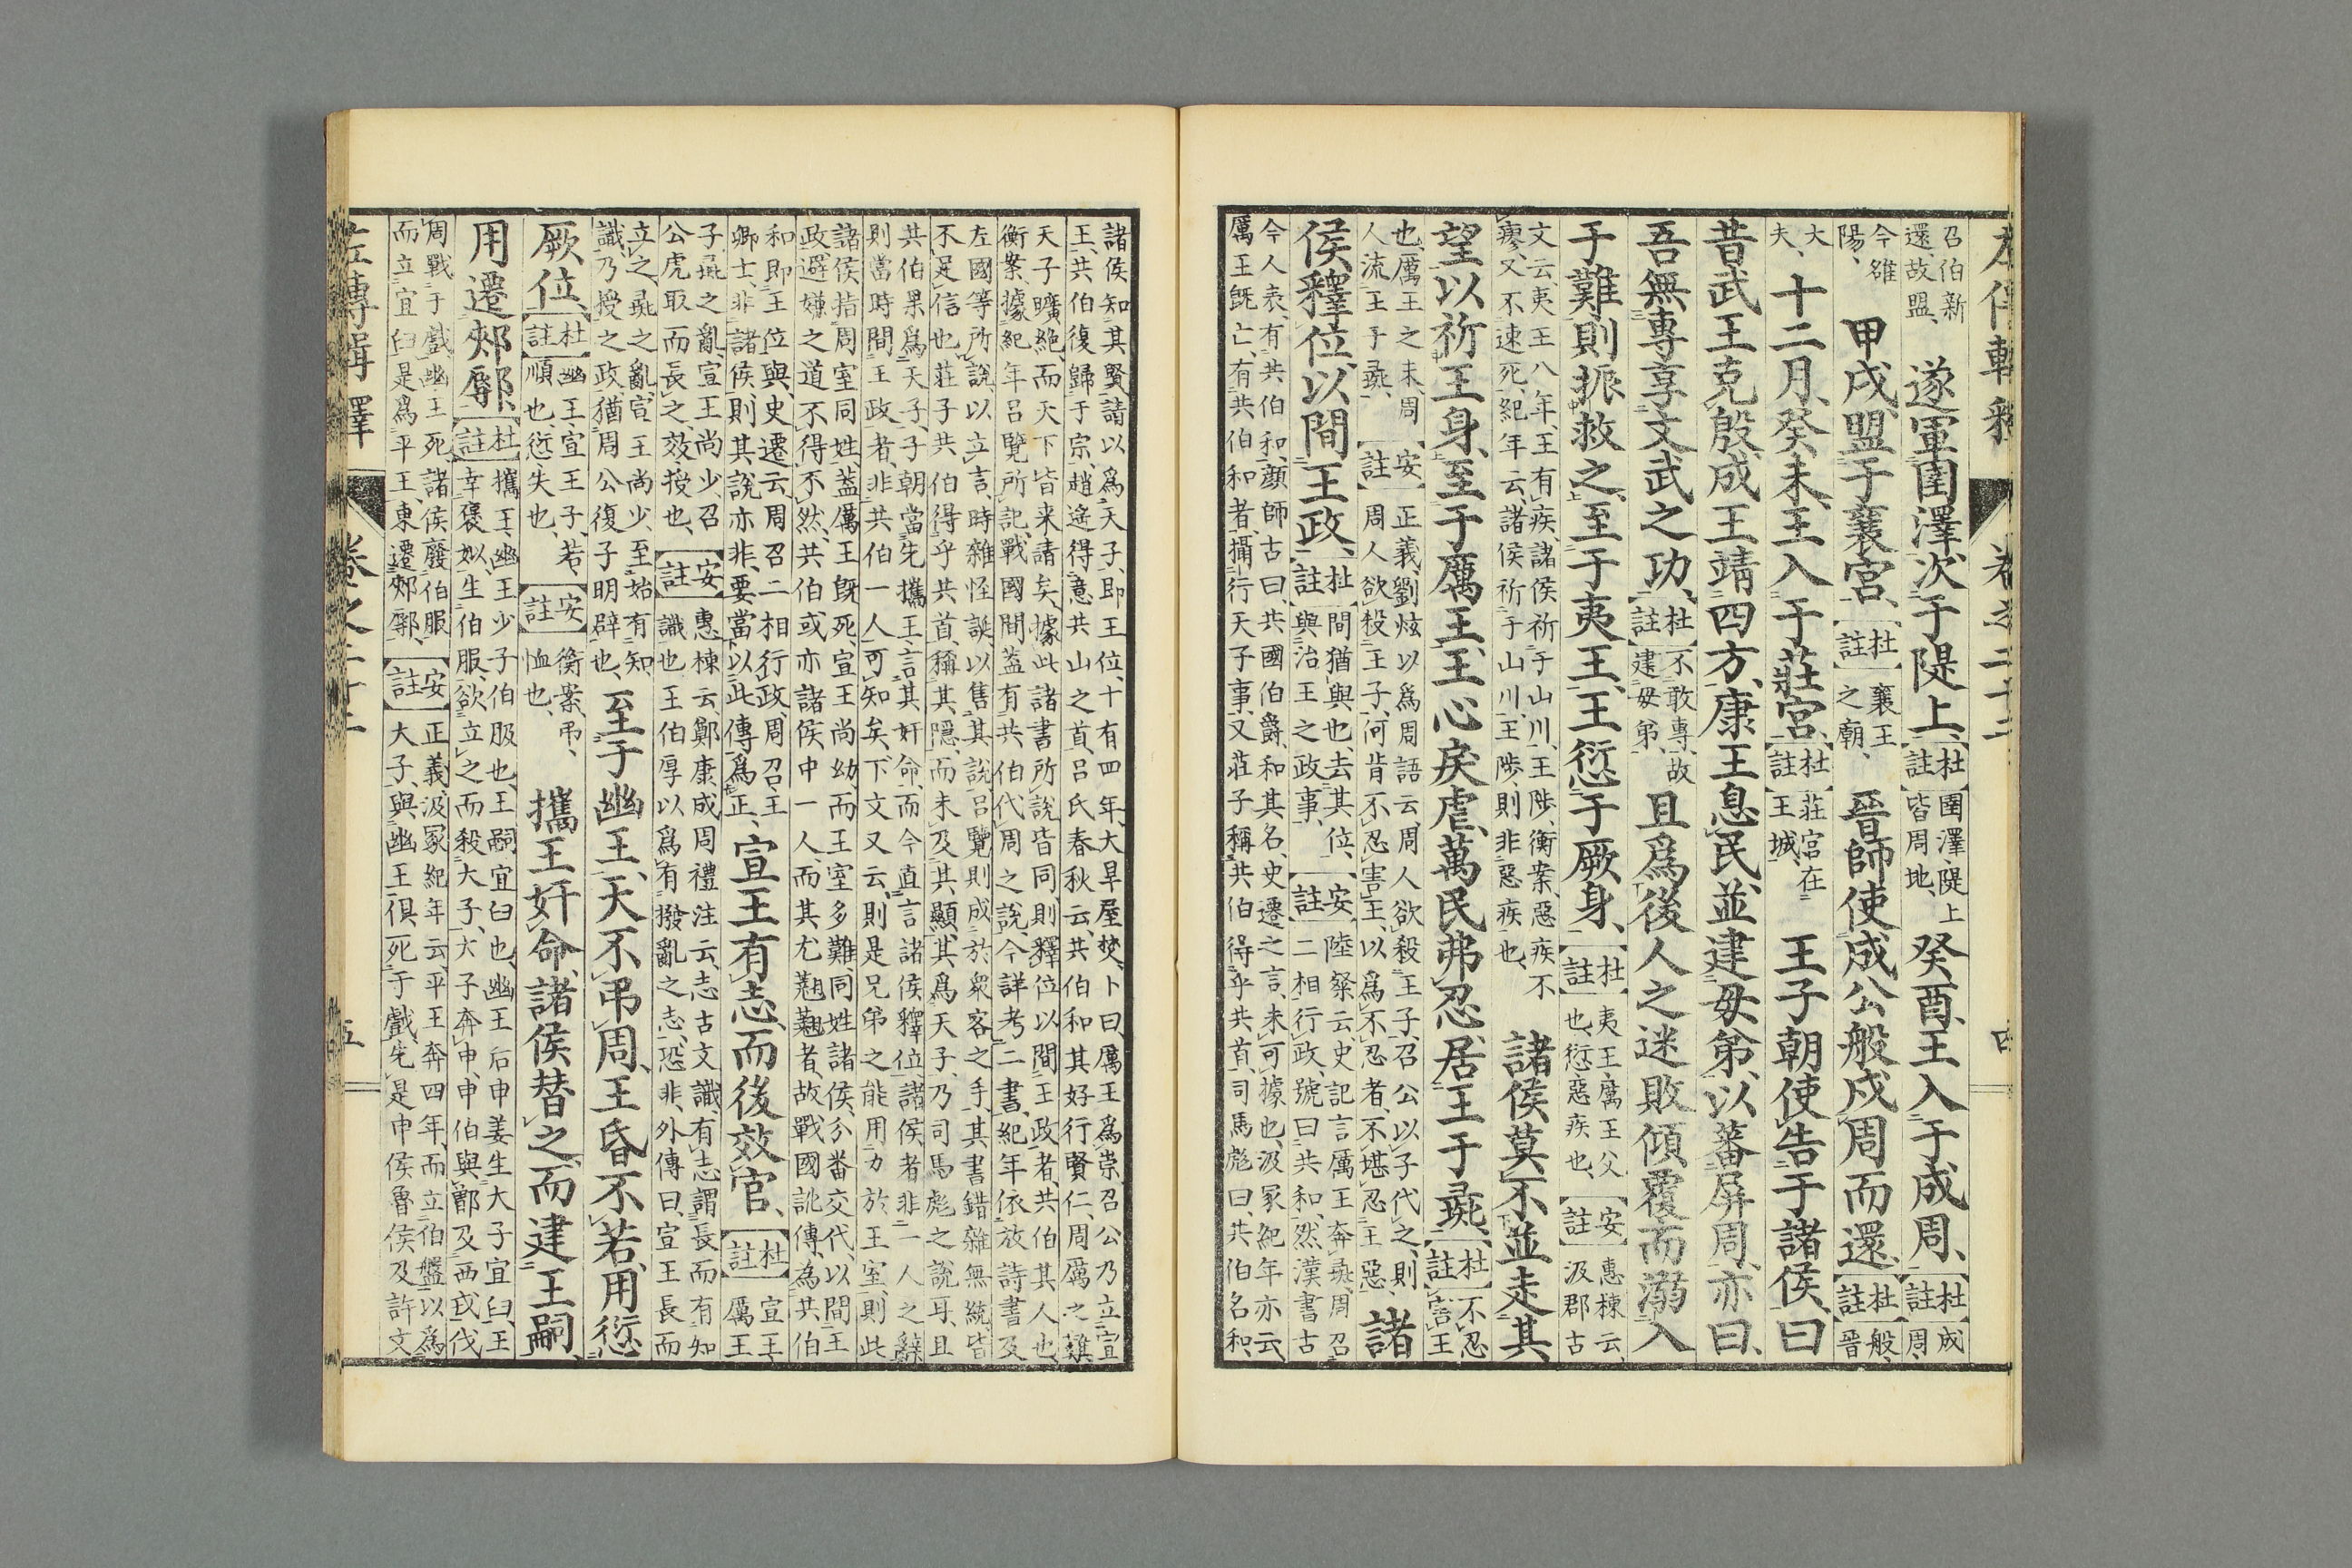 召伯新
還故盟、
遂軍圉澤、次于隄上、
杜註
圉澤、隄上
皆周地、
癸酉、王入于成周、
杜註
成
周、
今雒
陽、
甲戌、盟于襄宮、
杜註
襄王
之廟、
晉師使成公般戍周而還、
杜註
般、
晉
大
夫、
十二月癸未、王入于莊宮、
杜註
莊宮在
王城、
王子朝使告于諸侯、曰
昔武王克殷、成王靖四方、康王息民、並建毋弟、以蕃屏周、亦曰、
吾無專享文武之功、
杜註
不敢專、故
建毋弟、
且爲後人之迷敗傾覆而溺入
于難、則振救之、至于夷王、王愆于厥身、
杜註
夷王厲王父
也、愆惡疾也、
安註
惠棟云、
汲郡古
文云、夷王八年、王有疾、諸侯祈于山川、王陟、衡案、惡疾不
瘳、又不速死、紀年云、諸侯祈于山川、王陟、則非惡疾也、
諸侯莫不並走其
望以祈王身、至于厲王、王心戾虐、萬民弗忍、居王于彘、
杜註
不忍
害王
也、厲王之末、周
人流王于彘、
安註
正義、劉炫以爲周語云、周人欲殺王子、召公以子代之、則
周人欲殺王子、何肯不忍害王、以爲不忍者、不堪忍王惡、
諸
侯釋位、以間王政、
杜註
間猶與也、去其位、
與治王之政事、
安註
陸粲云、史記言厲王奔彘、周召
二相行政、號曰共和、然漢書古
今人表、有共伯和、顔師古曰、共國伯爵、和其名、史遷之言、未可據也、汲冢紀年亦云、
厲王既亡、有共伯和者、攝行天子事、又莊子稱共伯得乎共首、司馬彪曰、共伯名和、
諸侯知其賢、請以爲天子、即王位、十有四年、大旱屋焚、卜曰、厲王爲祟、召公乃立宣
王、共伯復歸于宗、趙遙得意共山之首、呂氏春秋云、共伯和其好行賢仁、周厲之難
天子曠絶、而天下皆来請矣、據此諸書所說皆同、則釋位以間王政者、共伯其人也、
衡案、據紀年呂覽所記、戰國間蓋有共伯代周之說、今詳考二書、紀年依放詩書及
左國等所說以立言、時雜怪誕、以售其說、呂覽則成於衆客之手、其書錯雜無統、皆
不足信也、莊子共伯得乎共首、稱其隱、而未及其顯、其爲天子、乃司馬彪之說耳、且
共伯果爲天子、子朝當先攜王言其奸命、而今直言諸侯釋位、諸侯者非一人之辭
則當時間王政者、非共伯一人可知矣、下文又云、則是兄弟之能用力於王室、則此
諸侯指周室同姓、蓋厲王既死、宣王尚幼、而王室多難、同姓諸侯、分畨交代、以間王
政、避嫌之道、不得不然、共伯或亦諸侯中一人、而其尤翹翹者、故戰國訛傳、為共伯
和即王位與、史遷云、周召二相行政、周召王
卿士、非諸侯、則其說亦非、要當以此傳爲正、
宣王有志、而後效官、
杜註
宣王、
厲王
子、彘之亂、宣王尚少、召
公虎取而長之、效授也、
安註
惠棟云、鄭康成周禮注云、志古文識、有志謂長而有知
識也、王伯厚以爲有撥亂之志、恐非、外傳曰、宣王長而
立之、彘之亂、宣王尚少、至始有知
識、乃授之政、猶周公復子明辟也、
至于幽王、天不弔周、王昏不若、用愆
厥位、
杜註
幽王、宣王子、若
順也、愆失也、
安註
衡案、弔、
恤也、
攜王奸命、諸侯替之、而建王嗣、
用遷郟鄏、
杜註
攜王、幽王少子伯服也、王嗣宜臼也、幽王后申姜生大子宜臼、王
幸褒姒生伯服、欲立之而殺大子、大子奔申、申伯與鄫及西戎伐
周戰于戲、幽王死、諸侯廢伯服、
而立宜臼、是爲平王、東遷郟鄏、
安註
正義、汲冢紀年云、平王奔四年、而立伯盤以爲
大子、與幽王俱死于戲、先是申侯魯侯及許文
五